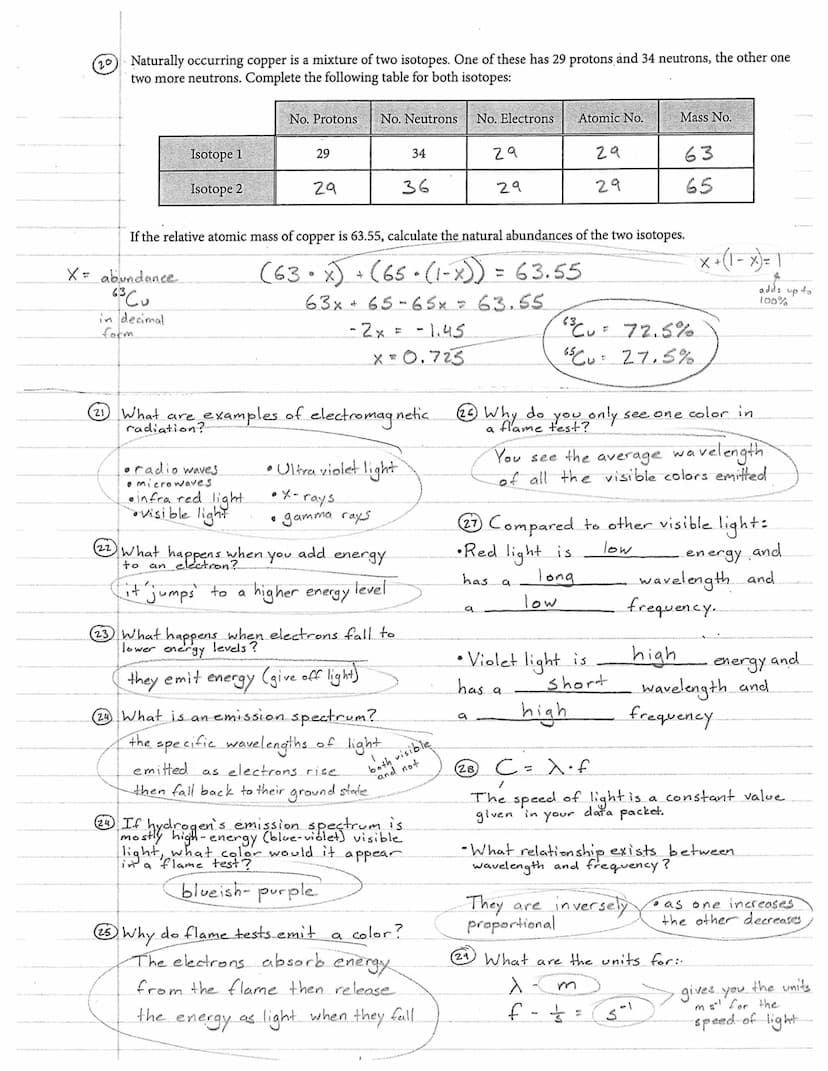 20 Naturally occurring copper is a mixture of two isotopes. One of these has 29 protons and 34 neutrons, the other one
two more neutrons. Complete the following table for both isotopes:
No. Protons No. Neutrons No. Electrons Atomic No. Mass No.
Isotope 1 29 34 29 29 63
Isotope 2 29 36 29 29 65
If the relative atomic mass of copper is 63.55, calculate the natural abundances of the two isotopes.
X = abundance
⁶³Cu
in decimal
form
(63 • x) + (65 • (1-x)) = 63.55
63x + 65 - 65x = 63.55
-2x = -1.45
x = 0.725
x + (1 - x) = 1
adds up to
100%
⁶³Cu = 72.5%
⁶⁵Cu = 27.5%
21 What are examples of electromagnetic
radiation?
• radio waves
• microwaves
• infra red light
• visible light
• Ultra violet light
• x-rays
• gamma rays
22 What happens when you add energy
to an electron?
it 'jumps' to a higher energy level
23 What happens when electrons fall to
lower energy levels?
they emit energy (give off light)
24 What is an emission spectrum?
the specific wavelengths of light
both visible
and not
emitted as electrons rise
then fall back to their ground state
24 If hydrogen's emission spectrum is
mostly high-energy (blue-violet) visible
light, what color would it appear
in a flame test?
blueish-purple
25 Why do flame tests emit a color?
The electrons absorb energy
from the flame then release
the energy as light when they fall
26 Why do you only see one color in
a flame test?
You see the average wavelength
of all the visible colors emitted
27 Compared to other visible light:
• Red light is low energy and
has a long wavelength and
a low frequency.
• Violet light is high energy and
has a short wavelength and
a high frequency
28 C = λ • f
The speed of light is a constant value
given in your data packet.
- What relationship exists between
wavelength and frequency?
They are inversely
proportional
• as one increases
the other decreases
29 What are the units for:
λ - m
f - 1/s = s⁻¹
gives you the units
m s⁻¹ for the
speed of light